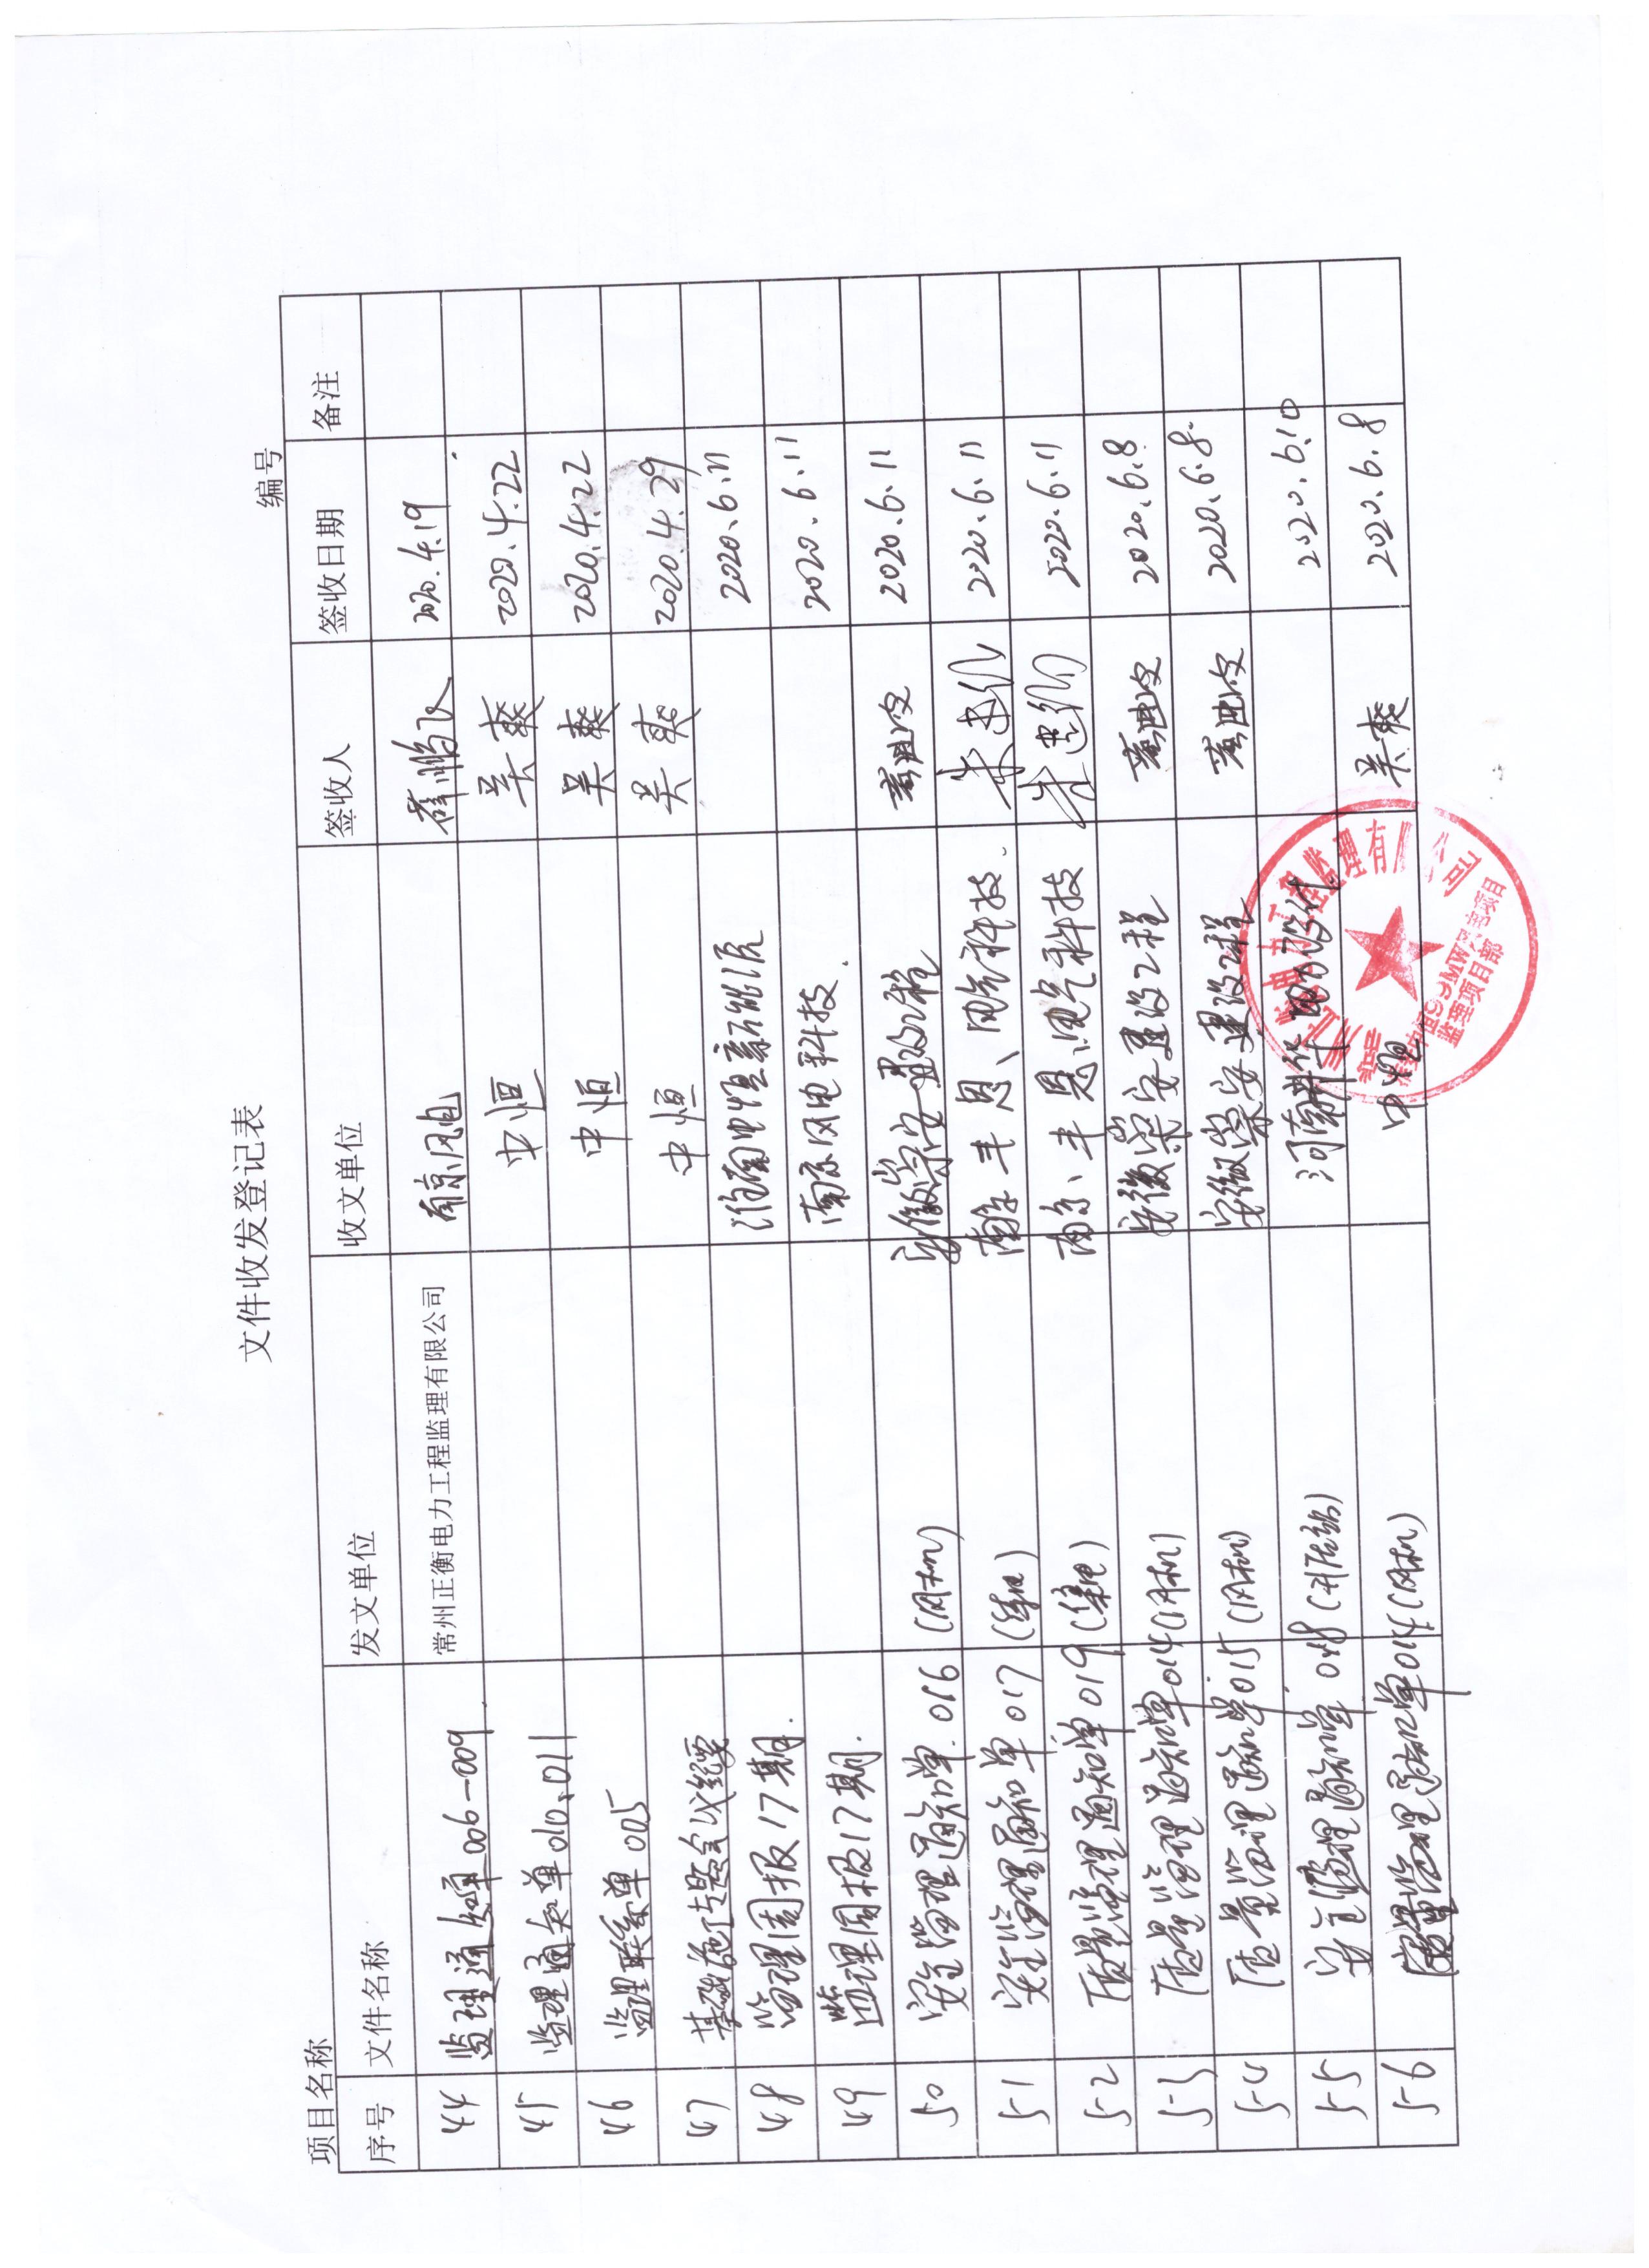 文件收发登记表
项目名称 编号
序号 文件名称 发文单位 收文单位 签收人 签收日期 备注
44 监理通知单006-009 常州正衡电力工程监理有限公司 南京风电 薛鹏飞 2020.4.19
45 监理通知单010、011 中恒 吴爽 2020.4.22
46 监理联系单005 中恒 吴爽 2020.4.22
中恒 吴爽 2020.4.29
47 基础施工专题会议纪要 淮南中恒新能源 2020.6.11
48 监理周报17期. 南京风电科技. 2020.6.11
49 监理周报17期.
50 安全监理通知单016(风机) 安徽崇安建设工程 2020.6.11
51 安全监理通知单017(集电) 南京丰恩、电气科技. 2020.6.11
52 质量监理通知单019(集电) 南京、丰恩电气科技 2020.6.11
53 质量监理通知单014(风机) 安徽崇安建设工程 2020.6.8
54 质量监理通知单015(风机) 安徽崇安建设工程 2020.6.8.
55 安全监理通知单018(升压站) 河南 2020.6.10
56 监理通知单014(风机) 中恒 吴爽 2020.6.8
电力工程监理有限公司
99MW
监理项目部